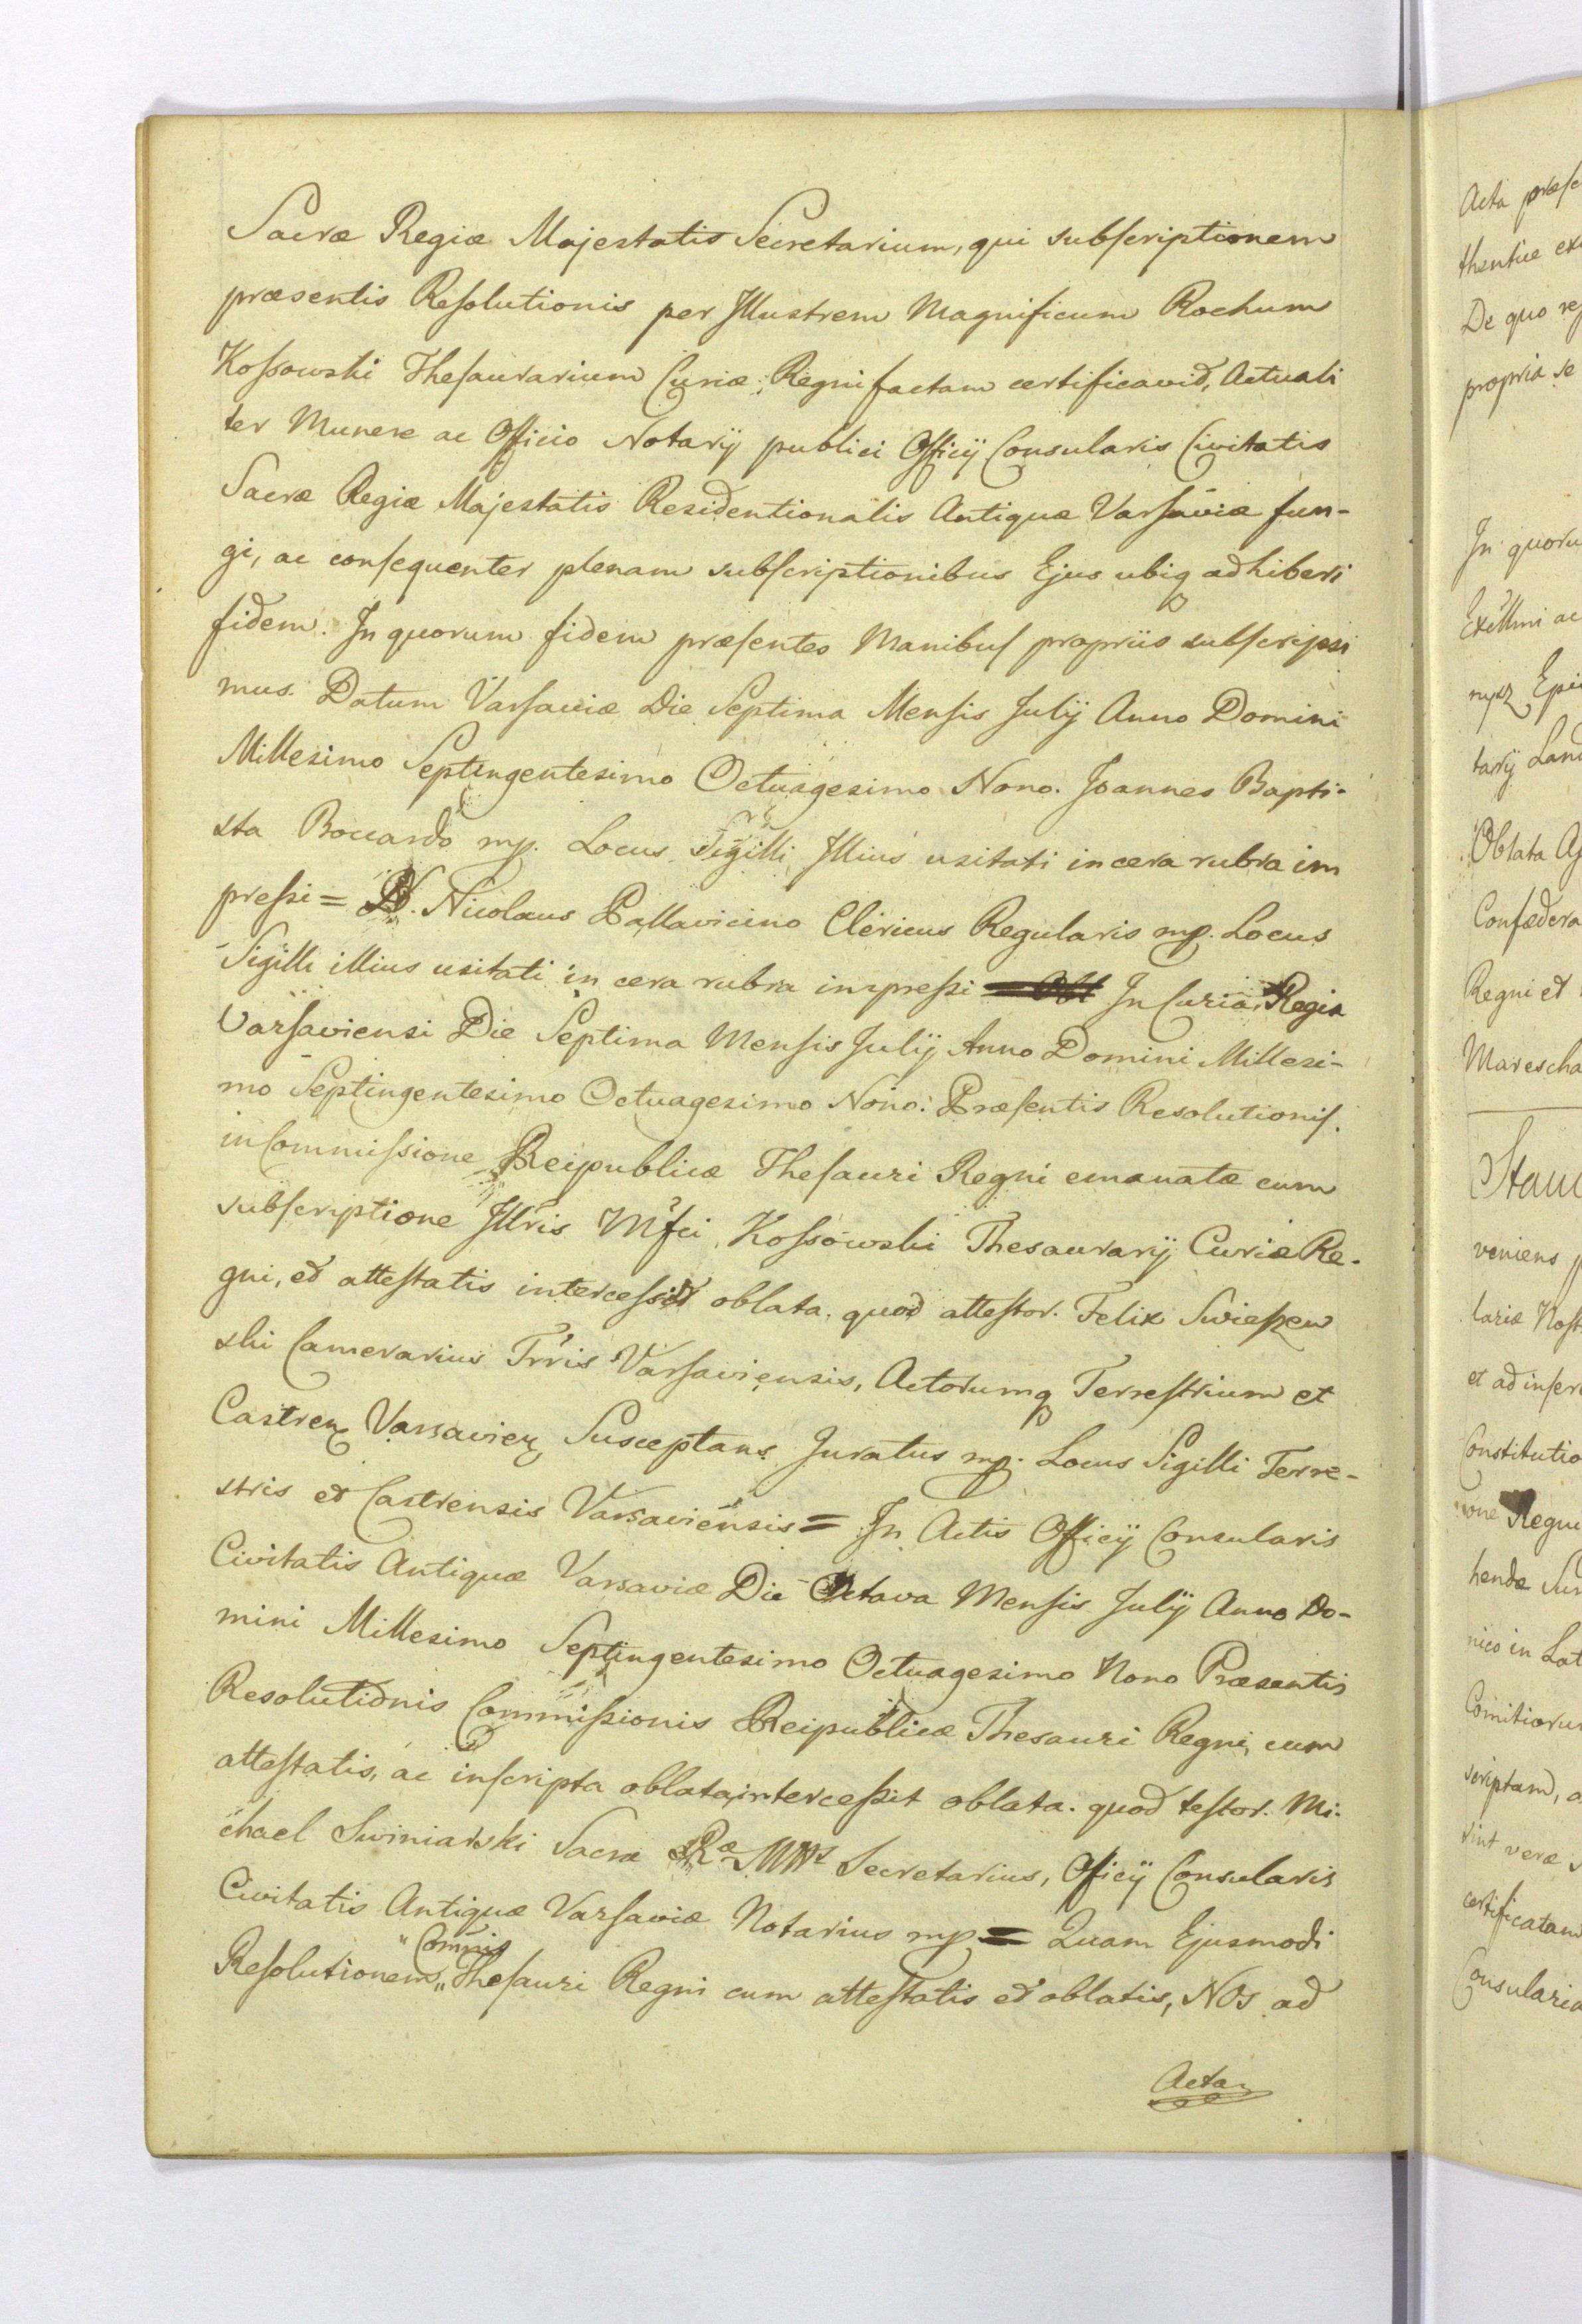 Sacræ Regiæ Majestatis Secretarium, qui subscriptionem
præsentis Resolutionis per Illustrem Magnificum Rochum
Kossowski Thesaurarium Curiæ Regni factam certificavit, Actuali
ter Munere ac Officio Notarij publici Officij Consularis Civitatis
Sacræ Regiæ Majestatis Residentionalis Antiquæ Varsaviæ fun-
gi, ac consequenter plenam subscriptionibus Ejus ubiq adhiberi
fidem. In quorum fidem præsentes Manibus propriis subscripsi
mus. Datum Varsaviæ Die Septima Mensis Julij Anno Domini
Millesimo Septingentesimo Octuagesimo Nono. Joannes Bapti-
sta Boccardo mp. Locus Sigilli Illius usitati in cera rubra im
pressi = D. Nicolaus Pallavicino Clericus Regularis mp. Locus
Sigilli illius usitati in cera rubra impressi In Curia Regia
Varsaviensi Die Septima Mensis Julij Anno Domini Millesi-
mo Septingentesimo Octuagesimo Nono. Præsentis Resolutionis.
in Commissione Reipublicæ Thesauri Regni emanatæ cum
subscriptione Illris Mfci Kossowski Thesaurarij Curiæ Re-
gni, et attestatis intercessit oblata, quod attestor. Felix Swieszew
ski Camerarius Trris Varsaviensis, Actorumq Terrestrium et
Castren Varsavien Susceptans Juratus mp. Locus Sigilli Terre-
stris et Castrensis Varsaviensis = In Actis Officij Consularis
Civitatis Antiquæ Varsaviæ Die Octava Mensis Julij Anno Do-
mini Millesimo Septingentesimo Octuagesimo Nono Præsentis
Resolutionis Commissionis Reipublicæ Thesauri Regni, cum
attestatis, ac inscripta oblata, intercessit oblata. quod testor. Mi-
chael Swiniarski Sacræ Ræ Mttis Secretarius, Officij Consularis
Civitatis Antiquæ Varsaviæ Notarius mp. = Quam Ejusmodi
" Commis
Resolutionem " Thesauri Regni cum attestatis et oblatis, NOS ad
Acta
Acta præse
thentice ex
De quo
propria se
In quoru
ac
tarij Land
Oblata
Confœdera
Regni et
Marescha
veniens
lariæ Nost
et ad inser
Constitutio
Regni
hendæ
nico in Lat
Comitioru
scriptam,
sint veræ
certificatam
Consularia